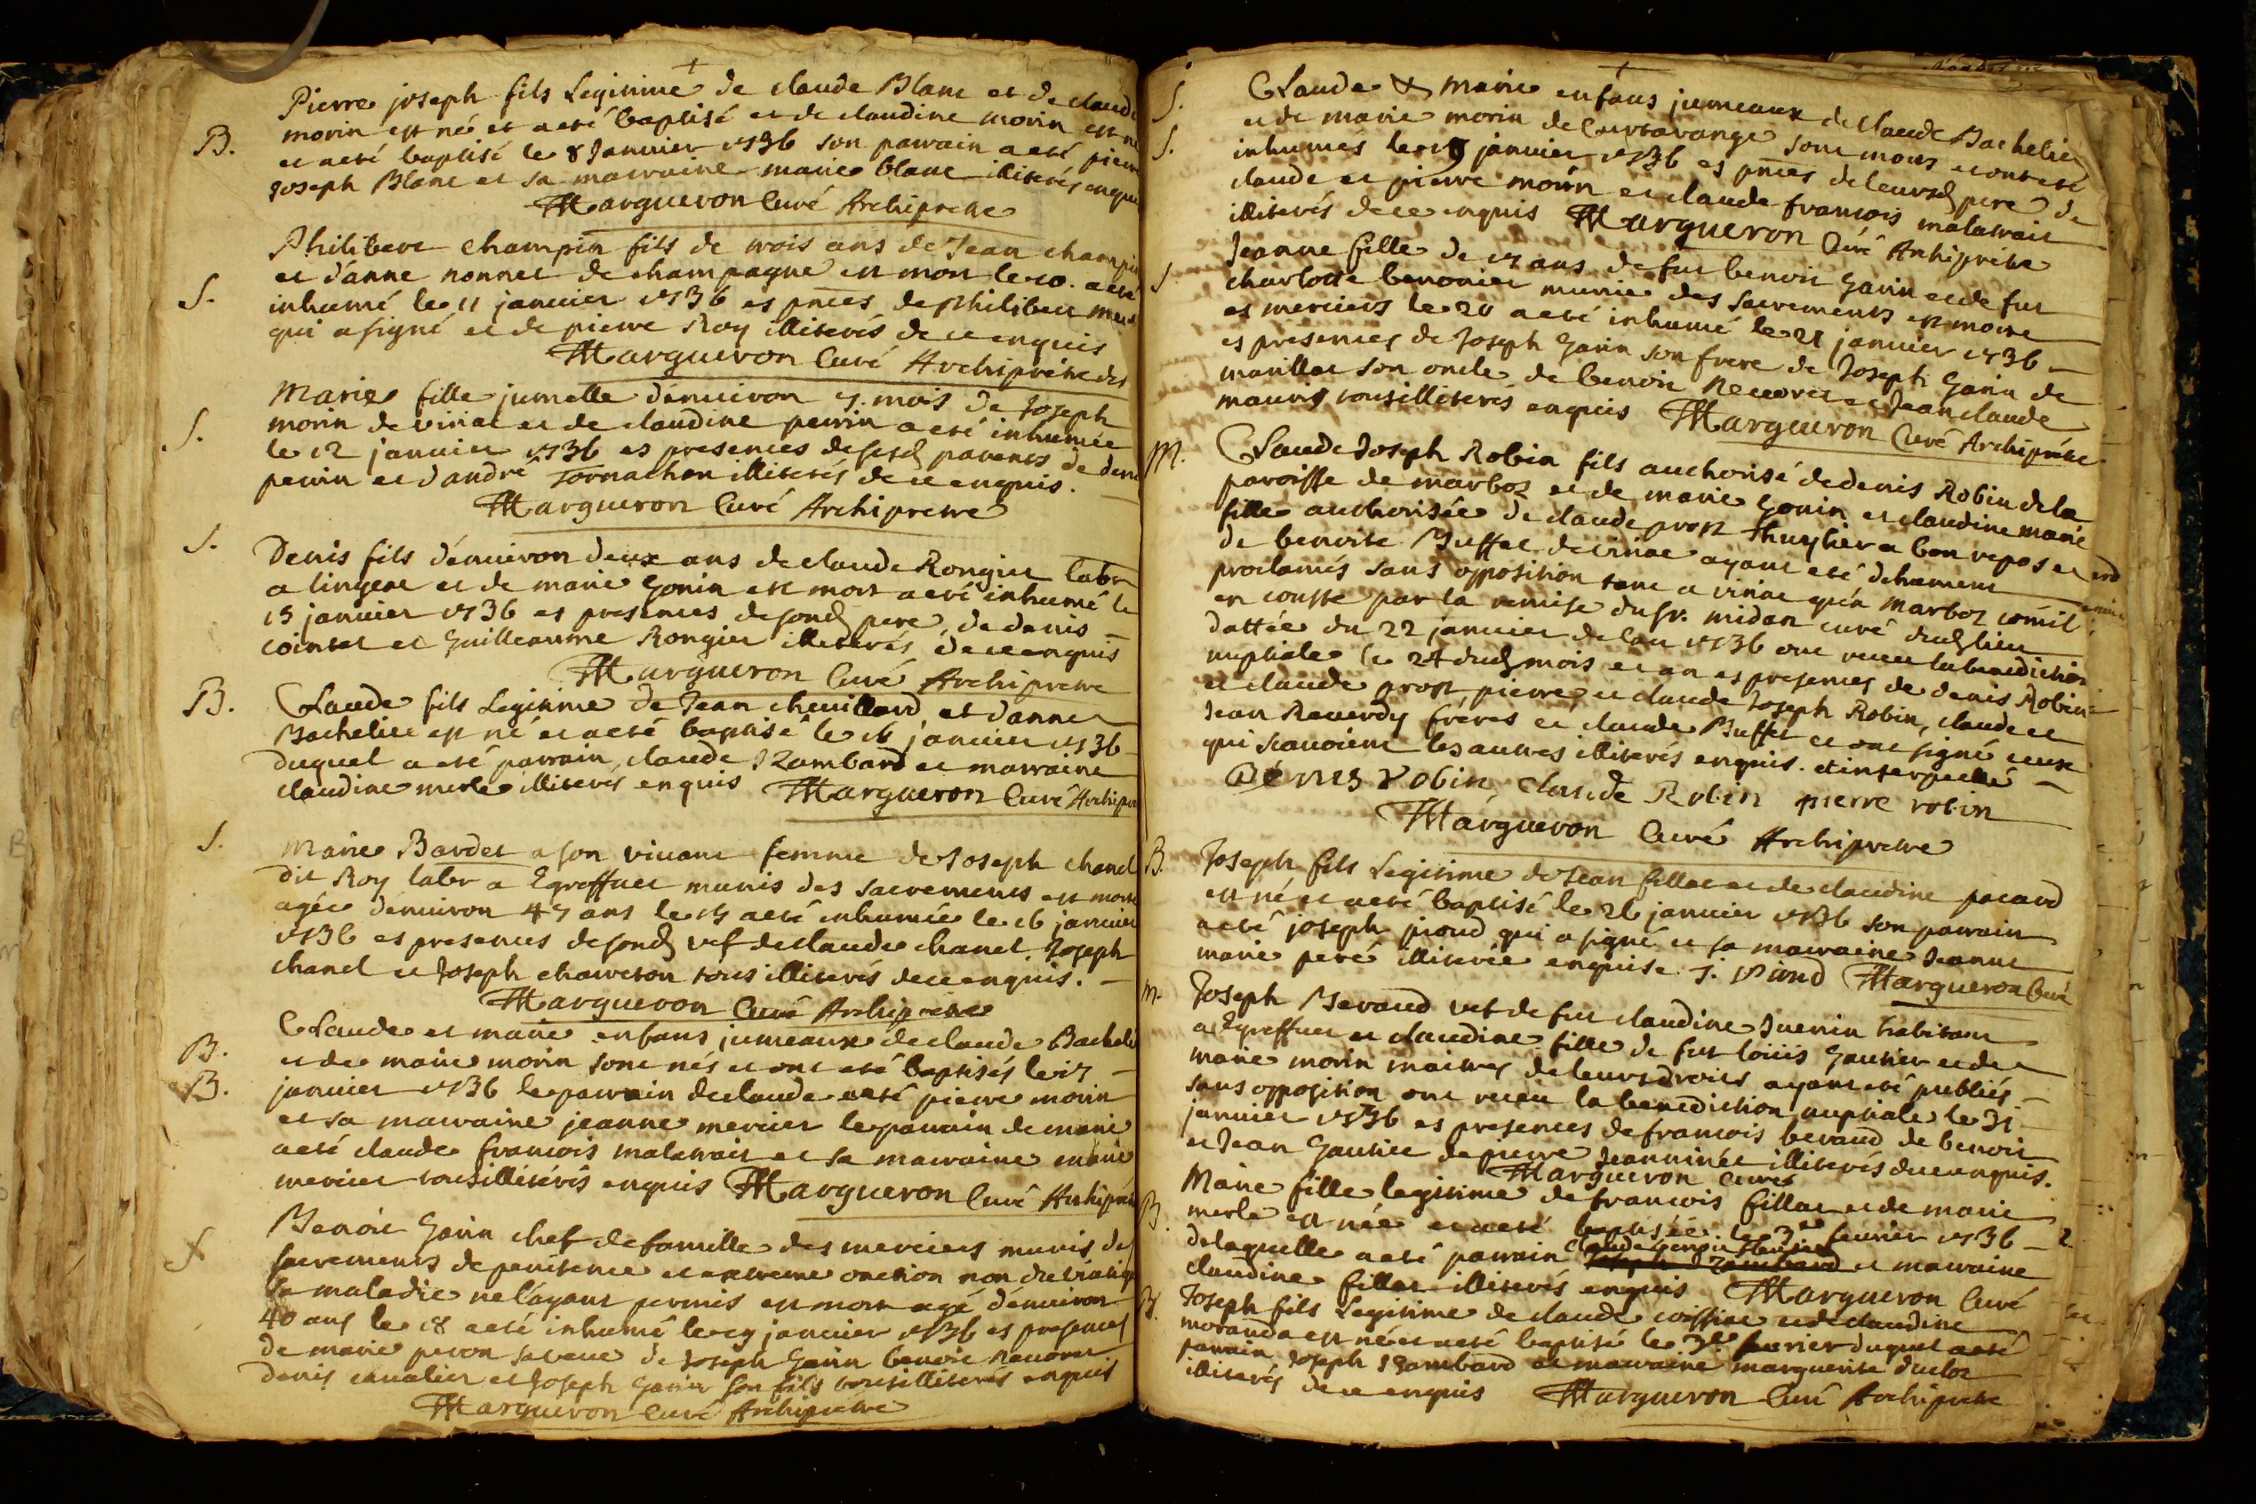 Pierre joseph fils Legitime de claude Blanc et de claud
B. morin est né et a eté baptisé et de claudine morin est né
et a eté baptisé le 8 Janvier 1736 son parrain a eté pierre
Joseph Blanc et sa marraine marie blanc illiterés enquis
Margueron Curé Archipretre
Philibert champin fils de trois ans de Jean champin
et d'anne nonnet de champagne est mort le 10. a eté
S. inhumé le 11 janvier 1736 es pnces de philibert
qui a signé et de pierre Roy illiterés de ce enquis
Margueron Curé Archiprêtre
Marie fille jumelle d'environ 7. mois de Joseph
S. morin de viriat et de claudine perrin a eté inhumée
le 12 janvier 1736 es presences desesd parents de denis
perrin et d'andré Tornachon illiterés de ce enquis.
Margueron Curé Archipretre
S. Denis fils d'environ deux ans de claude Rongier labr
a lingeat et de marie Gonin est mort a eté inhumé le
15 janvier 1736 es presences de sond pere, de denis
cointet et Guilleaume Rongier illiterés de ce enquis
Margueron Curé Archipretre
B. Claude fils Legitime de Jean chevillard et d'anne
Bachelier est né et a eté baptisé le 16 janvier 1736
duquel a eté parrain claude Izambard et marraine
claudine merle illiterés enquis Margueron Curé Archipr
S. Marie Bardet a son vivant femme de Joseph chanel
dit Roy labr a Egreffuet munis des sacrements est morte
agée d'environ 47 ans le 15 a eté inhumée le 16 janvier
1736 es presences de sond vef de claude chanel Joseph
chanel et Joseph chaveton tous illiterés de ce enquis.
Margueron Curé Archiprêtre
Claude et marie enfans jumeaux de claude Bachelier
B. et de marie morin sont nés et ont eté baptisés le 17
B. janvier 1736 le parrain de claude a eté pierre morin
et sa marraine jeanne mercier le parrain de marie
a eté claude francois malatrait et sa marraine marie
mercier tous illiterés enquis Margueron Curé Archiprê
S Benoit Garin chef de famille des merciers munis des
sacrements de penitence et extreme onction non du viatique
sa maladie ne l'ayant permis est mort agé d'environ
40 ans le 18 a eté inhumé le 19 janvier 1736 es presences
de marie peron sa veuve de Joseph Garin benoit
denis cavalier et Joseph Garin son fils tous illiterés enquis
Margueron Curé Archiprêtre
S. Claude & marie enfans jumeaux de claude Bachelier
S. et de marie morin de Curtavange sont morts et ont eté
inhumés le 19 janvier 1736 es pnces de leursd pere de
claude et pierre morin et claude francois malatrait
illiterés de ce enquis Margueron Curé Archiprêtre
Jeanne fille de 17 ans de fut benoit Garin et de fut
S charlotte benonier munie des sacrements est morte
es merciers le 20 a eté inhumé le 21 janvier 1736
es presences de Joseph Garin son frere de Joseph Garin de
marillat son oncle de benoit et Jean claude
mauris tous illiterés enquis Margueron Curé Archiprêtre
M. Claude Joseph Robin fils authorisé de denis Robin de la
paroisse de marboz et de marie Gonin et claudine marie
fille authorisée de claude prost Thuylier a bon repos et
de benoite Buffet de viriat ayant eté dehument
proclamés sans opposition tant a viriat qu'a marboz comil
en conste par la remise du sr. midan curé dud lieu
dattée du 22 janvier de l'an 1736 ont receu la benediction
nuptiale le 24 dud mois et an es presences de denis Robin
et claude prost pierre et claude Joseph Robin, claude et
Jean Reverdy fréres et claude Buffet et ont signé ceux
qui scavoient les autres illiterés enquis. et interpellé
Denis Robin claude Robin pierre robin
Margueron Curé Archipretre
B. Joseph fils Legitime de Jean fillat et de claudine pacard
est né et a eté baptisé le 26 janvier 1736 son parrain
a eté joseph pioud qui a signé et sa marraine Jeanne
marie peré illiterée enquise J. Pioud Margueron Curé
M. Joseph Bevaud vef de fut claudine Juenin habitant
a Egreffuet et claudine fille de fut loüis Gautier et de
marie morin maitres de leurs droits ayant eté publiés
sans opposition ont receu la benediction nuptiale le 31
janvier 1736 es presences de francois bevaud de benoit
et Jean Gautier de pierre Jeanninée illiterés de ce enquis.
Margueron Curé
Marie fille legitime de francois fillat et de marie
B. merle est née et a eté baptisée le 3e fevrier 1736
de laquelle a eté parrain claude Joseph Izambard et marraine
claudine fillat illiterés enquis Margueron Curé
B. Joseph fils Legitime de claude et de claudine
morandat est né et a eté baptisé le 3e fevrier duquel a eté
parrain Joseph Izambard et marraine marguerite duclos
illiterés de ce enquis Margueron Curé Archiprêtre